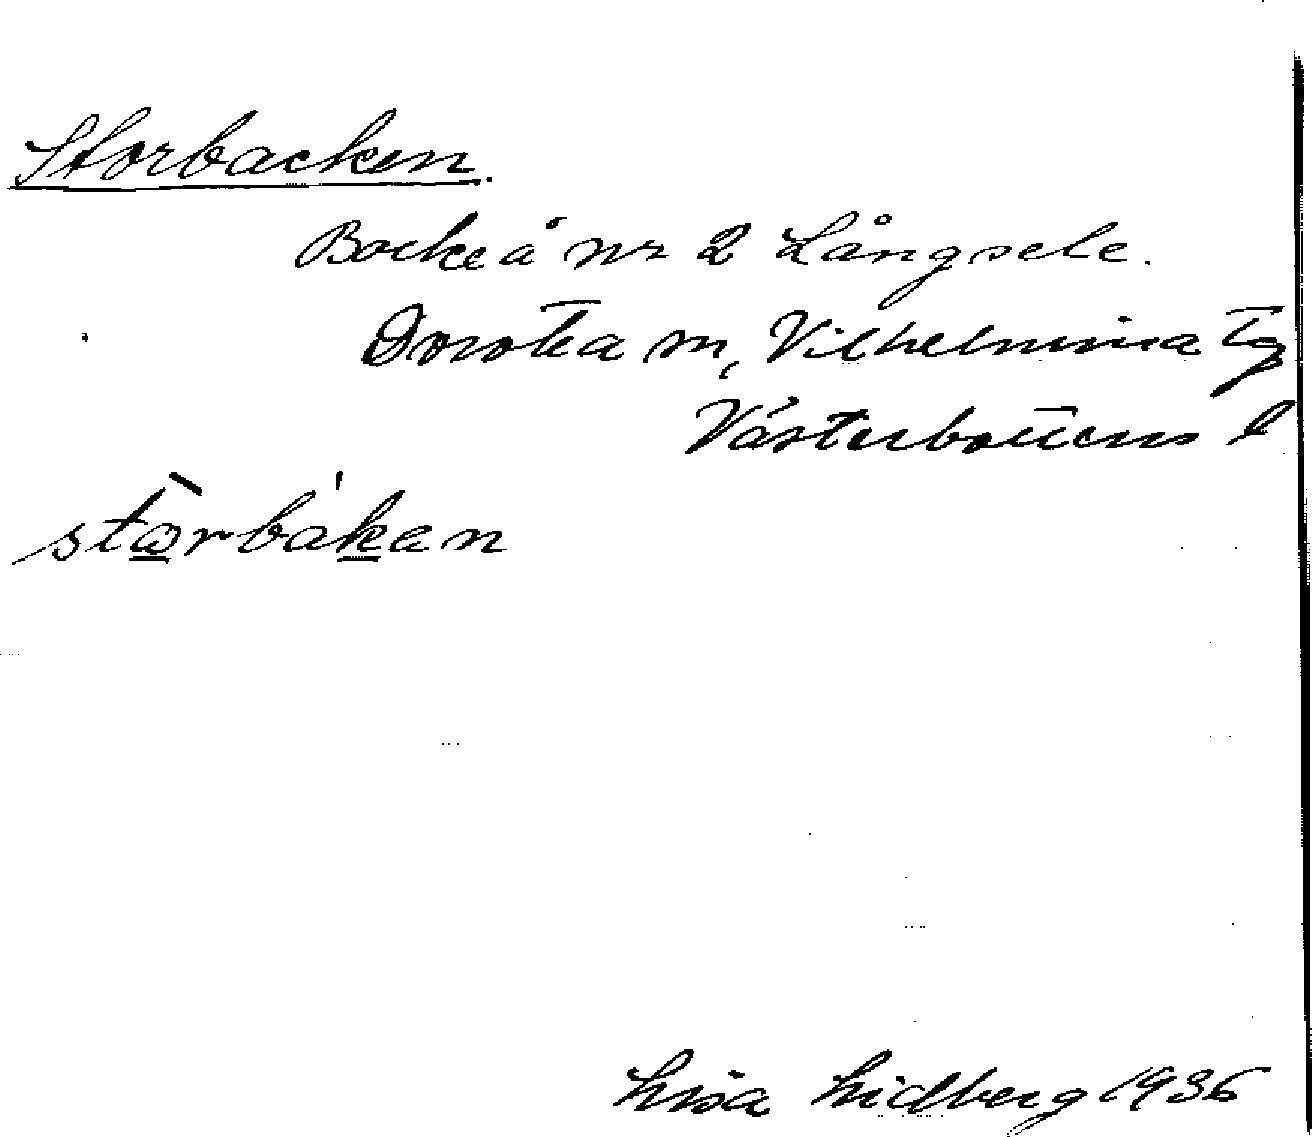 Storbacken.
Bockeå nr 2 Långsele.
Dorotea m, Vilhelmina tg
Västerbottens l
stòrbak̲an
Lisa Lidberg 1936